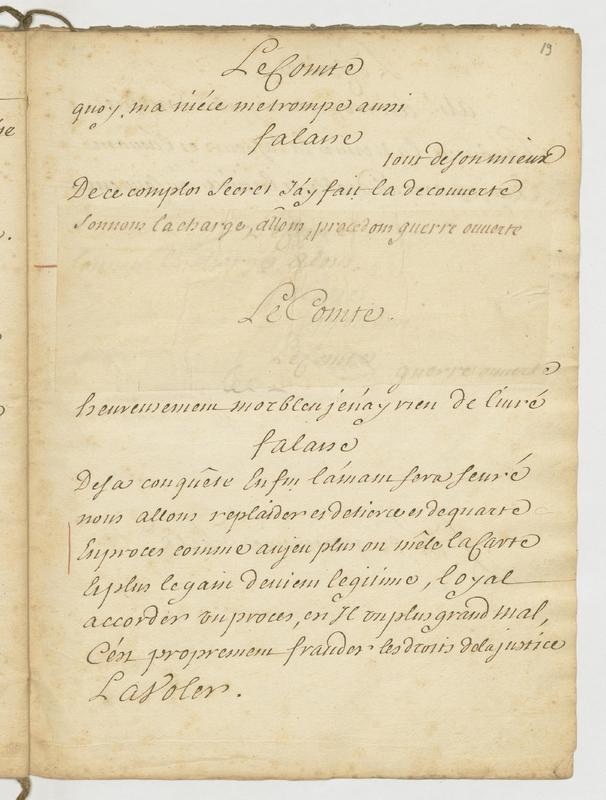 19
Le Comte
quoy, ma niéce me trompe aussi
falaise
tout de son mieux
De ce complot Secret J'ay fait la decouverte
Sonnons la charge, allons, procedons guerre ouverte
Le Comte.
heureusement morbleu je n'ay rien de livré
falaise
De sa conquête Enfin l'amant sera sevré
nous allons replaider et de tierce et de quarte
En proces comme au jeu plus on mêle la Carte
Et plus le gain devient legitime, loyal
accorder un proces, en Il un plus grand mal,
C'est proprement frauder les droits de la justice
La Voler.